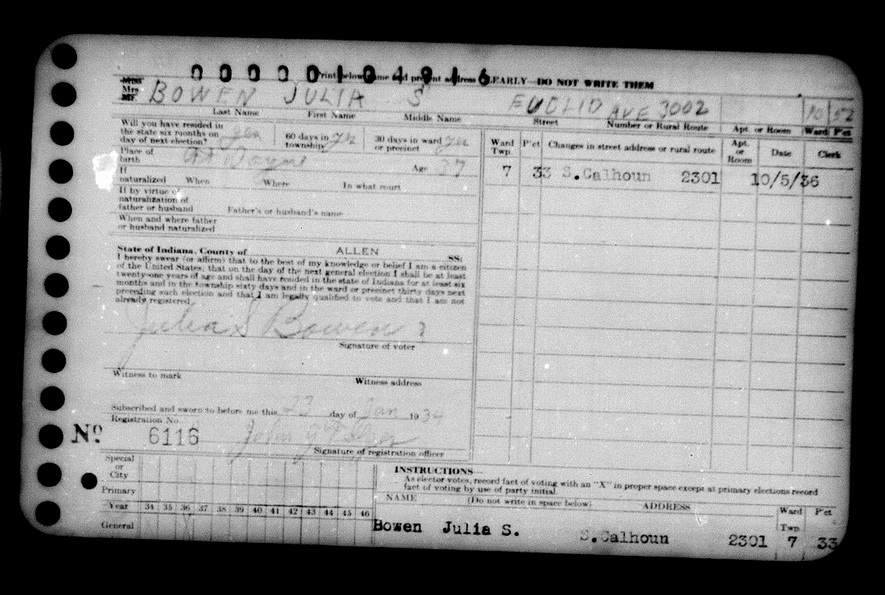 000001 01 4 9 1 6
Print below name and present address CLEARLY—DO NOT WRITE THEM
Miss
Mrs
Mr. BOWEN JULIA S EUCLID AVE 3002 10 52
Last Name First Name Middle Name Street Number or Rural Route Apt. or Room Ward P'ct
Will you have resided in
the state six months on
day of next election? yea 60 days in township yes 30 days in ward or precinct yes
Ward Twp. P'ct Changes in street address or rural route Apt. or Room Date Clerk
Place of
birth Ft Wayne Age 37
7 33 S.Calhoun 2301 10/5/36
If
naturalized When Where In what court
If by virtue of
naturalization of
father or husband Father's or husband's name
When and where father
or husband naturalized
State of Indiana, County of ALLEN SS:
I hereby swear (or affirm) that to the best of my knowledge or belief I am a citizen
of the United States; that on the day of the next general election I shall be at least
twenty-one years of age and shall have resided in the state of Indiana for at least six
months and in the township sixty days and in the ward or precinct thirty days next
preceding such election and that I am legally qualified to vote and that I am not
already registered.
Julia S Bowen
Signature of voter
Witness to mark Witness address
Subscribed and sworn to before me this 23 day of Jan 1934
Registration No.
No 6116 John
Signature of registration officer
Special
or
City
Primary
Year 34 35 36 37 38 39 40 41 42 43 44 45 46
General
INSTRUCTIONS—
As elector votes, record fact of voting with an "X" in proper space except at primary elections record
fact of voting by use of party initial.
NAME (Do not write in space below) ADDRESS Ward Twp. P'ct
Bowen Julia S. S.Calhoun 2301 7 33